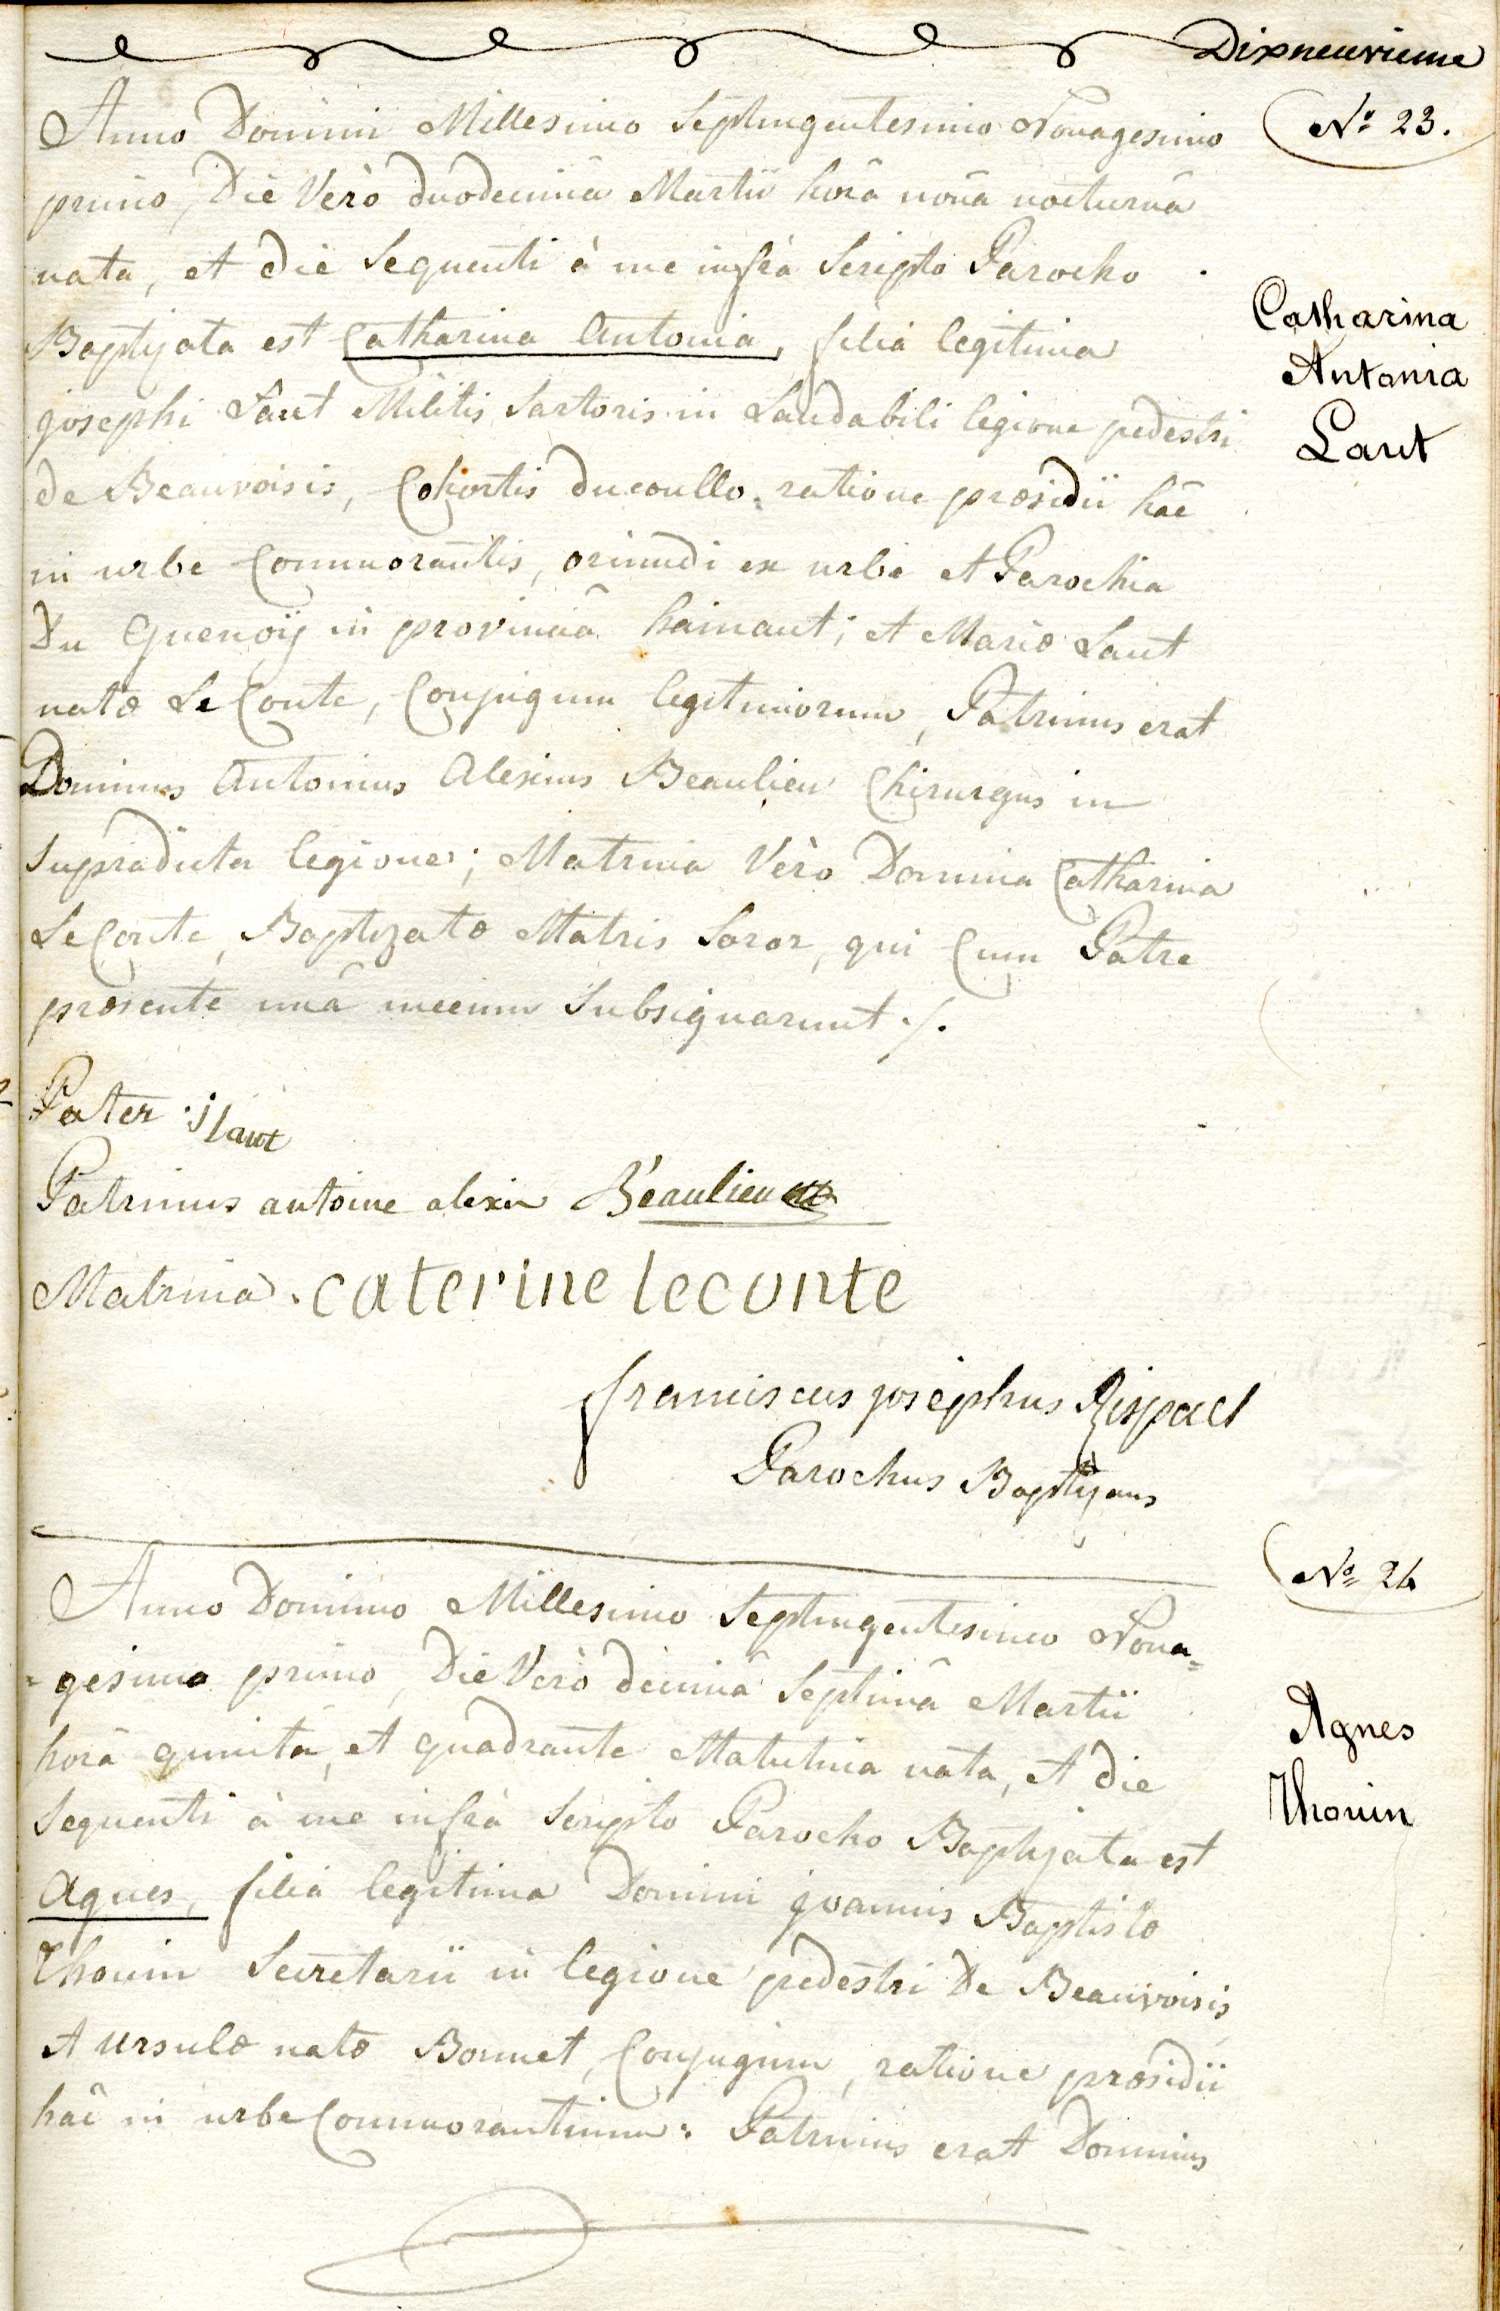 Dixneuvieme
Anno Domini Millesimo Septingentesimo Nonagesimo
N.º 23.
primo, Die Verò duodecimâ Martii horâ nonâ nocturnâ
nata, et die Sequenti à me infrà Scripto Parocho
Baptizata est Catharina Antonia, filia legitima
Catharina
Antonia
Laut
josephi Laut Militis Sartoris in Laudabili legione pedestri
de Beauvoisis, Cohortis ducoullo, ratione præsidii hâc
in urbe Commorantis, oriundi ex urbe et Parochia
Du Quenoÿ in provinciâ hainaut; et Mariæ Laut
natæ Le Conte, Conjugum legitimorum, Patrinus erat
Dominus Antonius Alexius Beaulieu Chirurgus in
supradicta legione; Matrina Vèro Domina Catharina
LeConte, Baptizatæ Matris Soror, qui Cum Patre
præsente unâ mecum Subsignarunt ./.
Pater : j laut
Patrinus antoine alexis Béaulieu
Matrina . caterine leconte
franciscus josephus Rispael
Parochus Baptizans
Anno Domino Millesimo Septingentesimo Nona=
N.º 24
=gesimo primo, Die Verò decimâ Septimâ Martii
horâ quintâ, et quadrante Matutina nata, et die
Agnes
Thouin
Sequenti à me infrà Scripto Parocho Baptizata est
Agnes, filia legitima Domini joannis Baptistæ
Thouin Secretarii in legione pedestri De Beauvoisis
et Ursulæ natæ Bonnet, Conjugum, ratione præsidii
hâc in urbe Commorantium: Patrinus erat Dominus